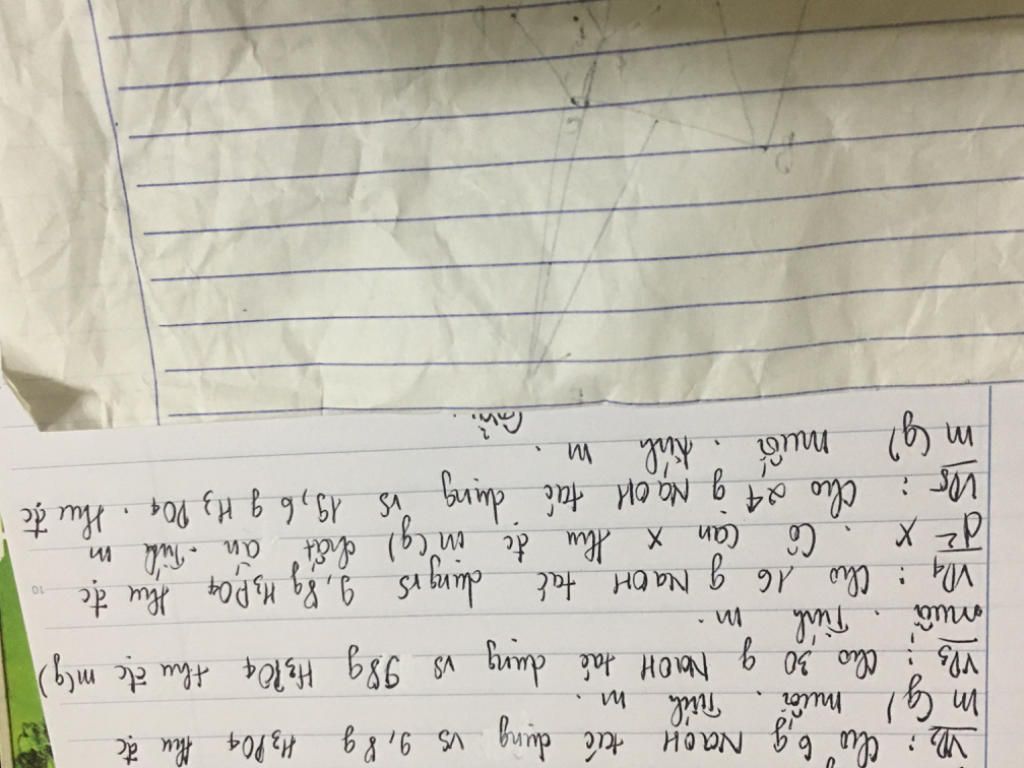 VD2 : Cho 6 g NaOH tác dụng vs 9,8 g H3PO4 thu đc
m (g) muối . Tính m .
VD3 : Cho 30 g NaOH tác dụng vs 98 g H3PO4 thu đc m(g)
muối . Tính m .
VD4 : Cho 16 g NaOH tác dụng vs 9,8g H3PO4 thu đc
d2 X . Cô cạn X thu đc m(g) chất rắn . Tính m
VD5 : Cho 24 g NaOH tác dụng vs 19,6 g H3PO4 . thu đc
m (g) muối . tính m .
Giải :
10